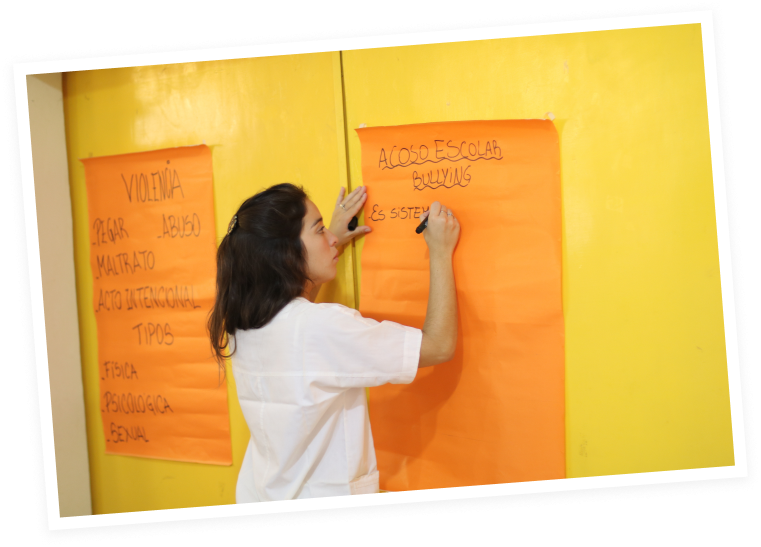 VIOLENCIA
-PEGAR -ABUSO
-MALTRATO
-ACTO INTENCIONAL
TIPOS
-FÍSICA
-PSICOLOGICA
-SEXUAL
ACOSO ESCOLAR
BULLYING
-ES SISTEM